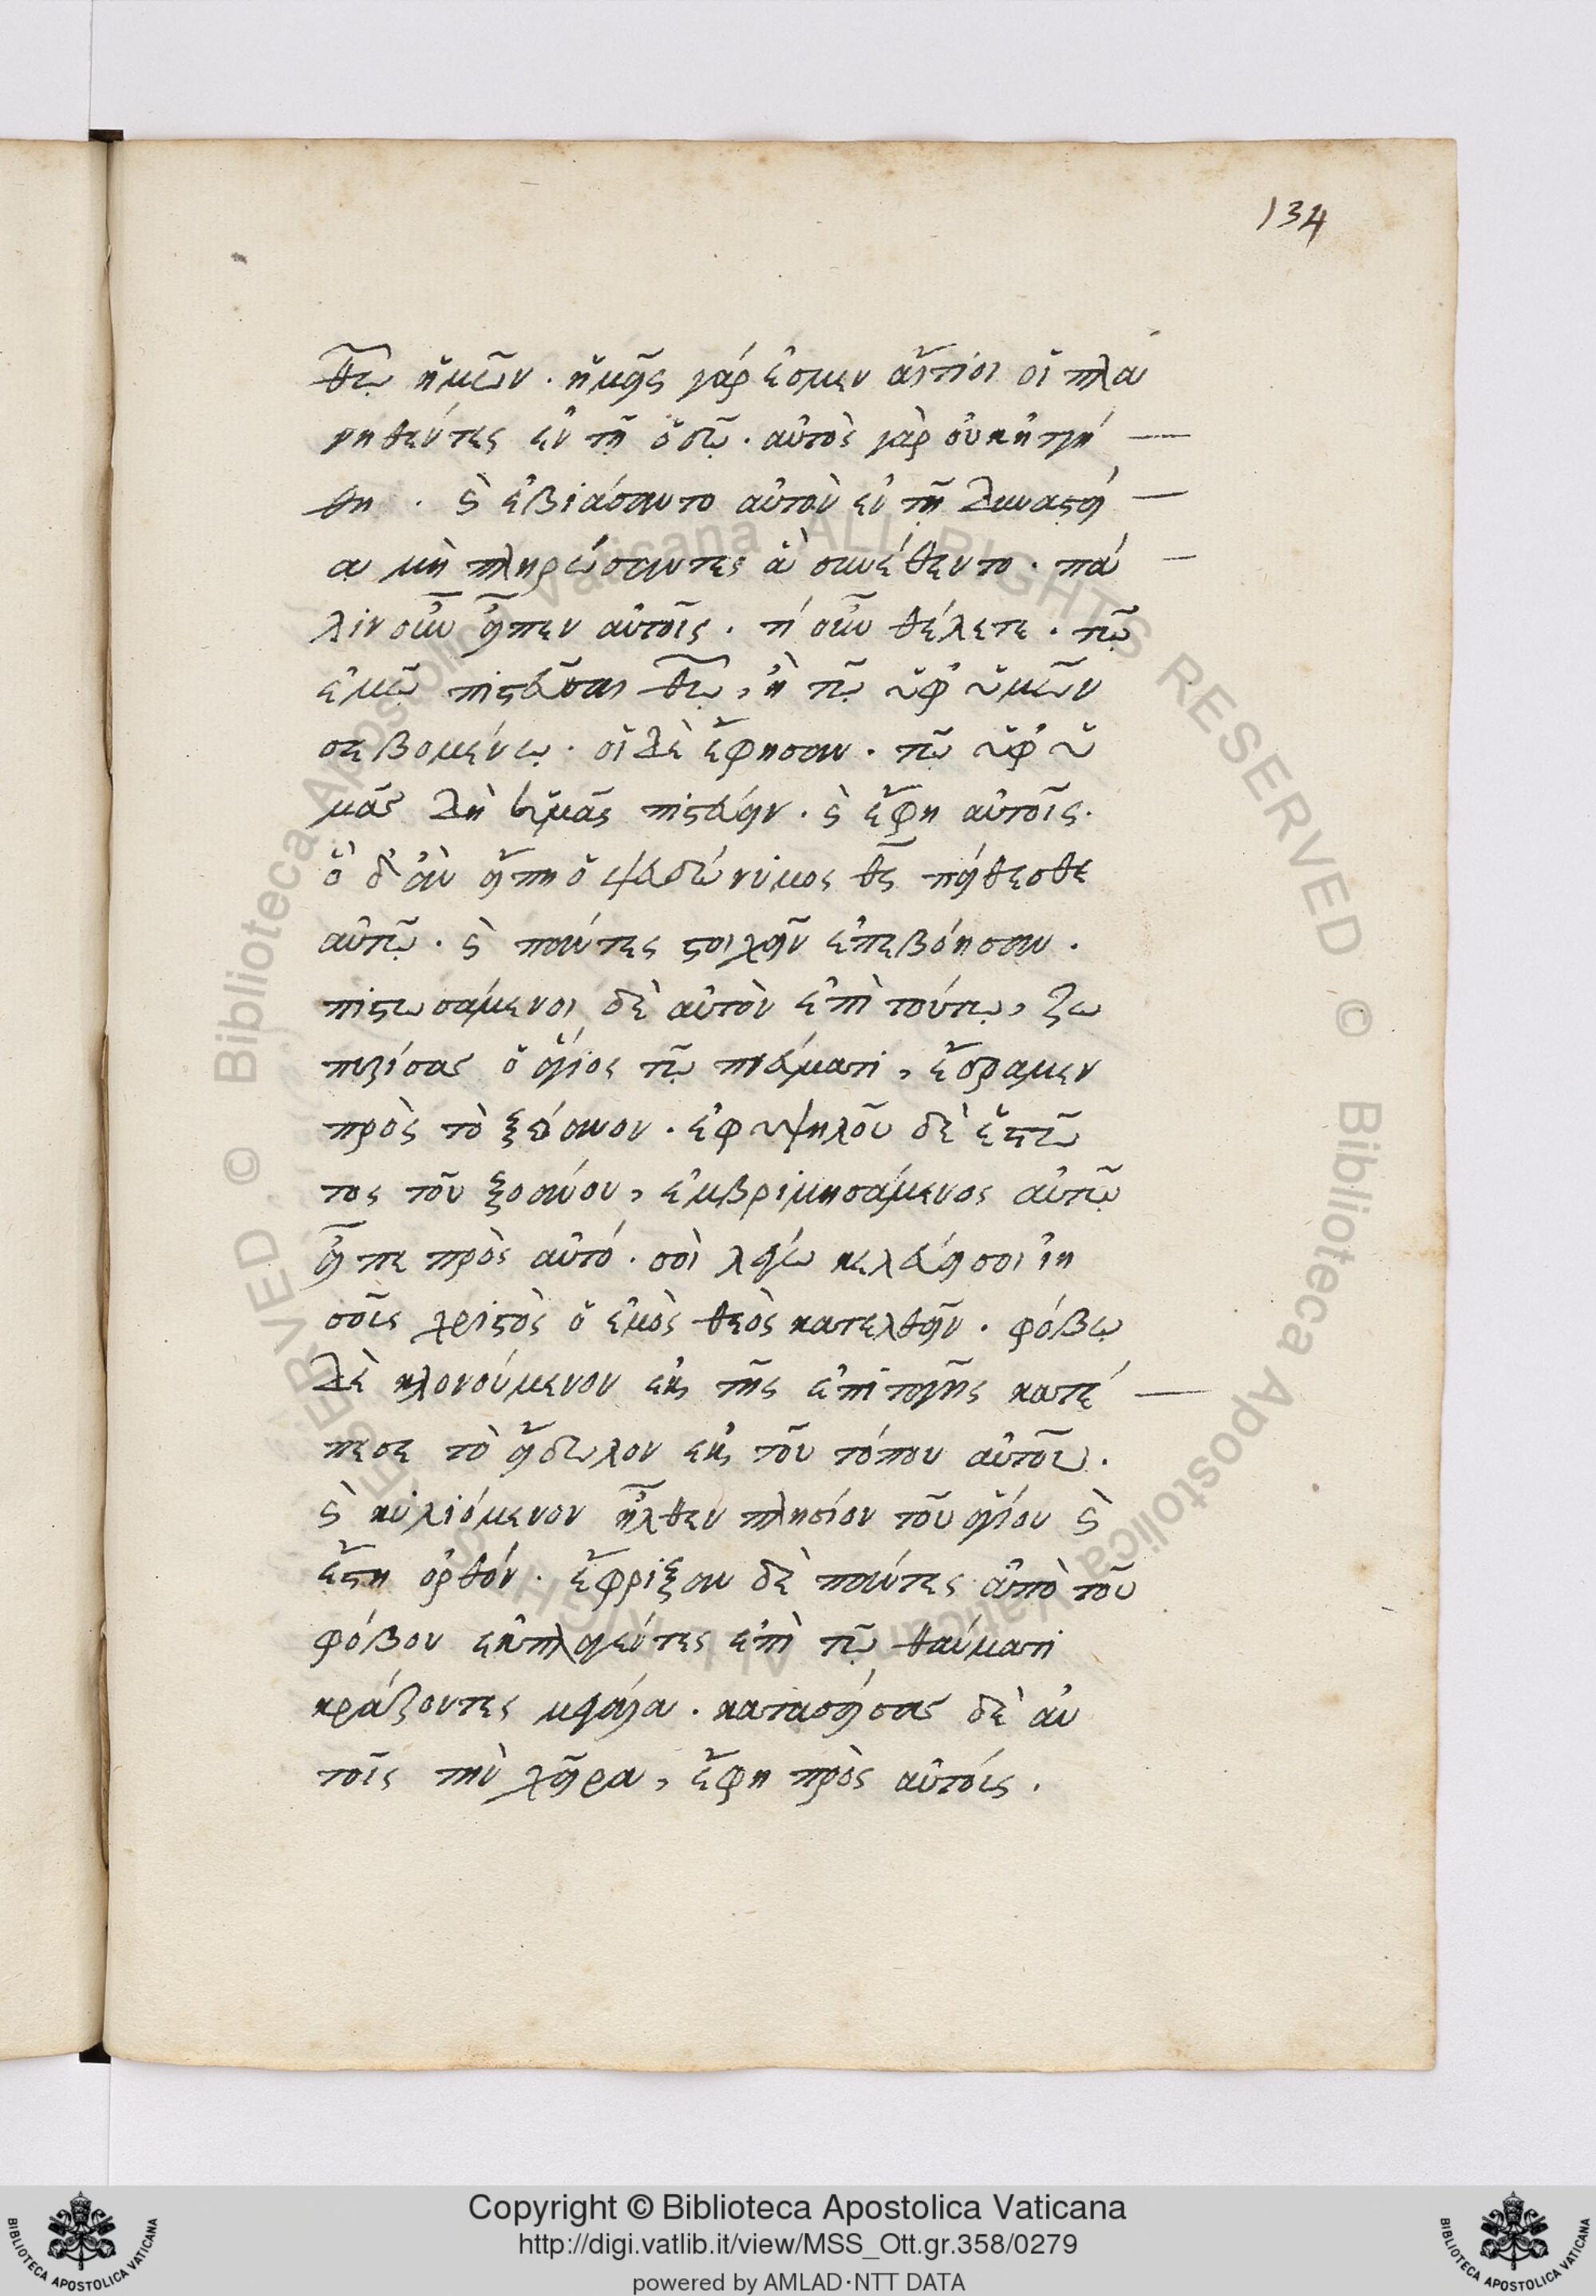 134
θω ἡμῶν. ἡμεῖς γάρ ἐσμεν αἴτιοι οἱ πλα
νηθέντες ἐν τῇ ὁδῷ. αὐτὸς γὰρ οὐκ ἡττή
θη. ϛ ἐβιάσαντο αὐτὸν ἐν τῇ δυναστεί
α μὴ πληρώσαντες ἃ συνέθεντο. πά
λιν οὖν εἶπεν αὐτοῖς. τί οὖν θέλετε. τῷ
ἐμῷ πιστεῦσαι θω, ἢ τῷ ὑφ' ὑμῶν
σεβομένῳ. οἱ δὲ ἔφησαν. τῷ ὑφ' ὑ
μᾶς δὴ ἡμᾶς πιστεύειν. ϛ ἔφη αὐτοῖς.
ὃ δ' ἂν εἴπη ὁ ψευδώνυμος θς πείθεσθε
αὐτῷ. ϛ πάντες στοιχεῖν ἐπεβόησαν.
πιστωσάμενοι δὲ αὐτὸν ἐπὶ τούτῳ, ζω
πυρίσας ὁ ἅγιος τῷ πνεύματι, ἔδραμεν
πρὸς τὸ ξόανον. ἐφ ὑψηλοῦ δὲ ἑστῶ
τος τοῦ ξοάνου, ἐμβριμησάμενος αὐτῷ
εἶπε πρὸς αὐτό. σοὶ λέγω κελεύει σοι ἰη
σοῦς χριστὸς ὁ ἐμὸς θεὸς κατελθεῖν. φόβῳ
δὲ κλονούμενον ἐκ τῆς ἐπιταγῆς κατέ
πεσε τὸ εἴδωλον ἐκ τοῦ τόπου αὐτοῦ.
ϛ κυλιόμενον ἦλθεν πλησίον τοῦ ἁγίου ϛ
ἔστη ὀρθόν. ἔφριξαν δὲ πάντες ἀπὸ τοῦ
φόβου ἐκπλαγέντες ἐπὶ τῷ θαύματι
κράζοντες μεγάλα. κατασείσας δὲ αὐ
τοῖς τὴν χεῖρα, ἔφη πρὸς αὐτούς.
Copyright © Biblioteca Apostolica Vaticana
http://digi.vatlib.it/view/MSS_Ott.gr.358/0279
powered by AMLAD·NTT DATA
BIBLIOTECA APOSTOLICA VATICANA
BIBLIOTECA APOSTOLICA VATICANA